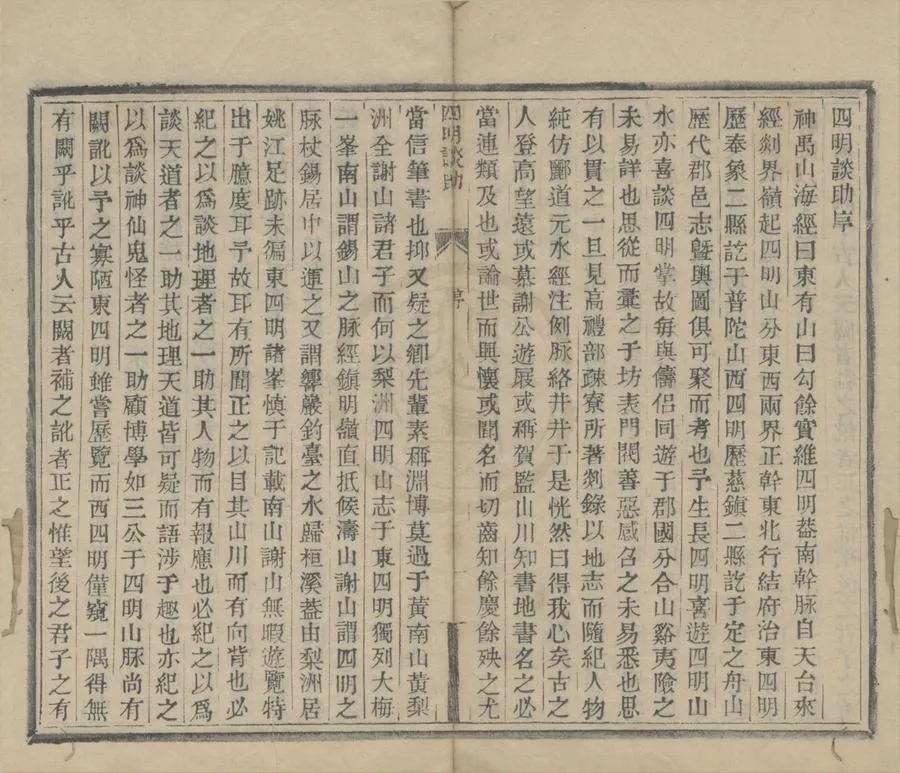 四明談助序
神禹山海經曰東有山曰勾餘實維四明葢南幹脉自天台來
經剡界嶺起四明山分東西兩界正幹東北行結府治東四明
歷奉象二縣訖于普陀山西四明歷慈鎮二縣訖于定之舟山
歷代郡邑志曁輿圖俱可聚而考也予生長四明喜遊四明山
水亦喜談四明掌故每與儔侶同遊于郡國分合山谿夷險之
未易詳也思從而彙之于坊表門閥善惡感召之未易悉也思
有以貫之一旦見高禮部疎寮所著剡錄以地志而隨紀人物
純仿酈道元水經注例脉絡井井于是恍然曰得我心矣古之
人登高望遠或慕謝公遊屐或稱賀監山川知書地書名之必
當連類及也或論世而興懷或聞名而切齒知餘慶餘殃之尤
四明談助
序
當信筆書也抑又疑之鄉先輩素稱淵博莫過于黃南山黃梨
洲全謝山諸君子而何以梨洲四明山志于東四明獨列大梅
一峯南山謂錫山之脉經鎮明嶺直抵候濤山謝山謂四明之
脉杖錫居中以運之又謂響巖釣臺之水歸桓溪葢由梨洲居
姚江足跡未徧東四明諸峯慎于記載南山謝山無暇遊覽特
出于臆度耳予故耳有所聞正之以目其山川而有向背也必
紀之以爲談地理者之一助其人物而有報應也必紀之以爲
談天道者之一助其地理天道皆可疑而語涉于趣也亦紀之
以爲談神仙鬼怪者之一助顧博學如三公于四明山脉尚有
闕訛以予之寡陋東四明雖嘗歷覽而西四明僅窺一隅得無
有闕乎訛乎古人云闕者補之訛者正之惟望後之君子之有